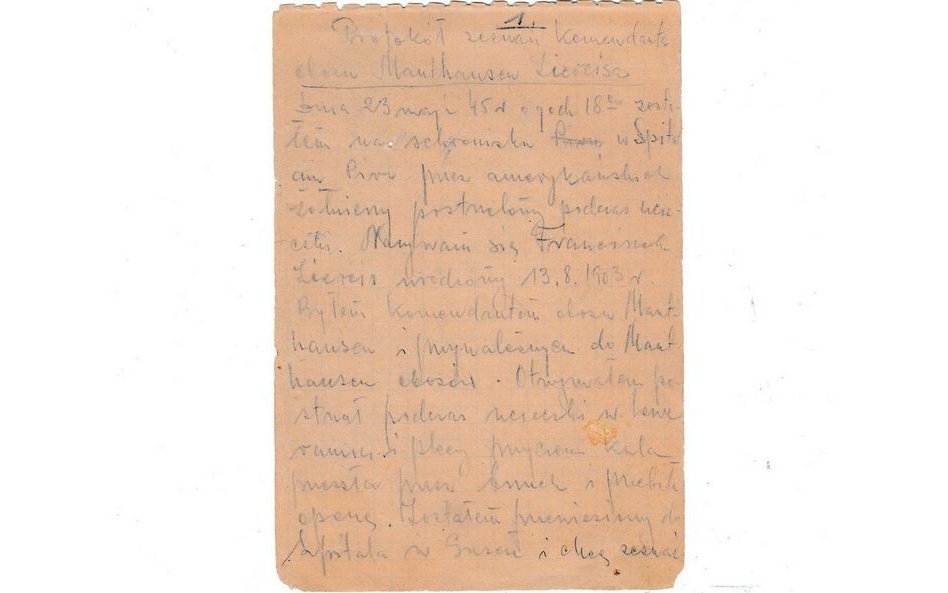 1.
Protokół zeznań Komendanta
obozu Mauthausen Ziereisa
Dnia 23 maja 45 r o godz 18 zosta
łem na schronisku w Spital
am Pirn przez amerykańskich
żołnierzy postrzelony podczas uciec
eczki. Nazywam się Franciszek
Ziereis urodzony 13.8.1903 r.
Byłem Komendantem obozu Maut
hausen i przynależnych do Maut
hausen obozów. Otrzymałem po
strzał podczas ucieczki w lewe
ramię i plecy przyczem kula
przeszła przez brzuch i przebiła
oponę. Zostałem przeniesiony do
Szpitala w Gusen i chcę zeznać